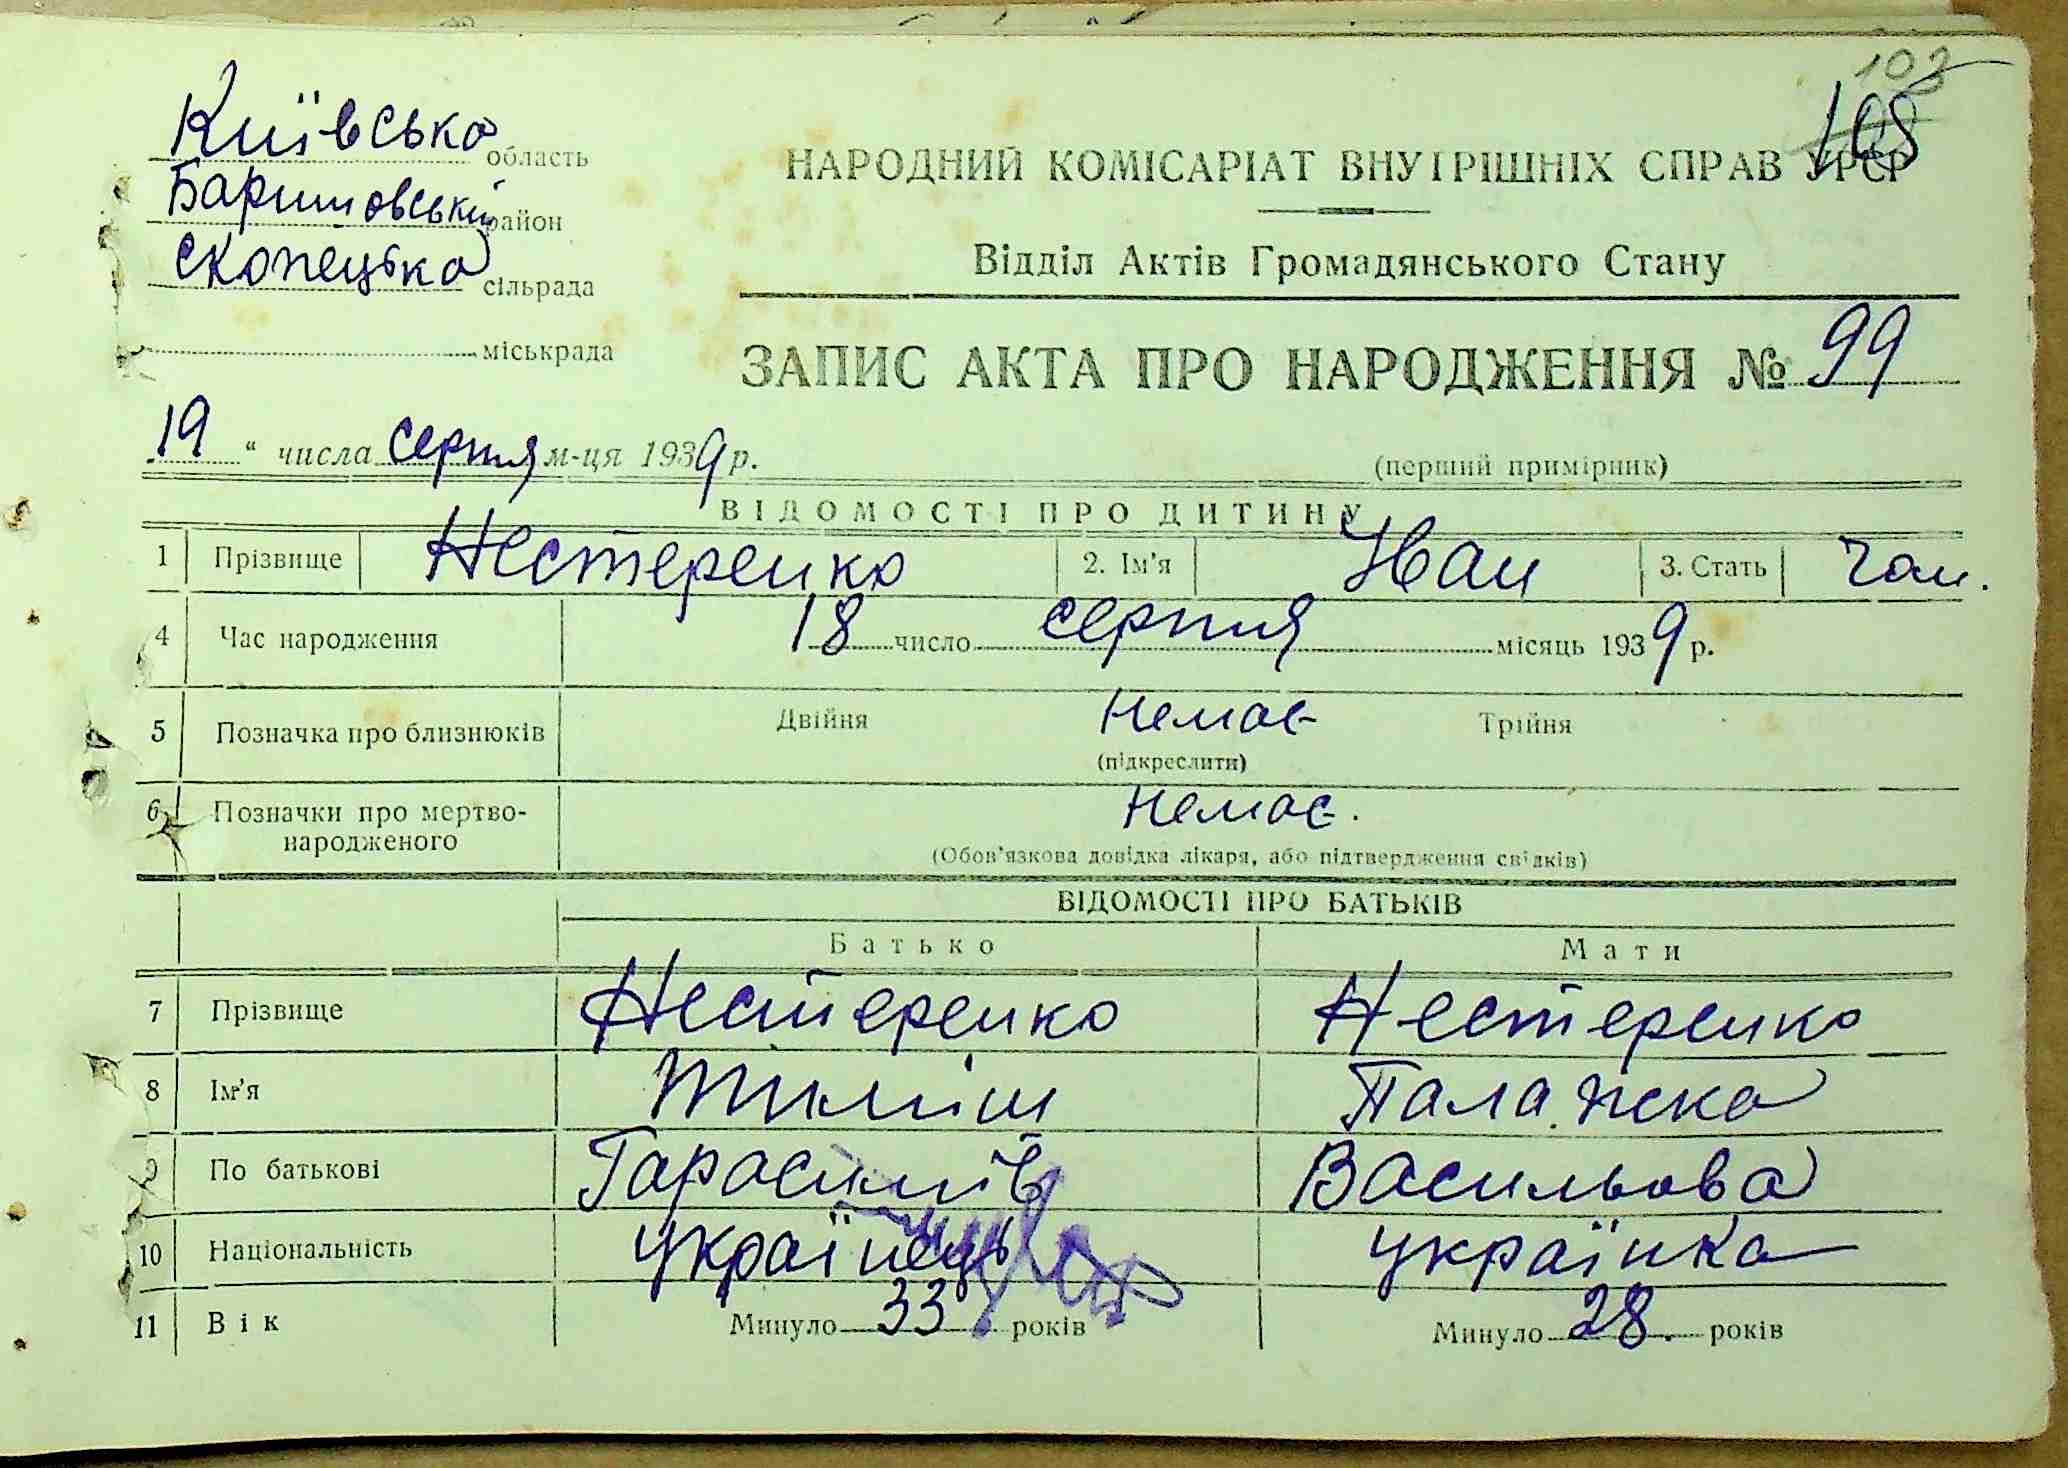 103
105
Київська область
Баришовський район
Скопецька сільрада
міськрада
НАРОДНИЙ КОМІСАРІАТ ВНУТРІШНІХ СПРАВ УРСР
Відділ Актів Громадянського Стану
ЗАПИС АКТА ПРО НАРОДЖЕННЯ № 99
19 " числа серпня м-ця 1939 р.
(перший примірник)
ВІДОМОСТІ ПРО ДИТИНУ
1 Прізвище Нестеренко 2. Ім'я Іван 3. Стать чол.
4 Час народження 18 число серпня місяць 1939 р.
5 Позначка про близнюків Двійня немає Трійня
(підкреслити)
6 Позначки про мертво-
народженого немає.
(Обов'язкова довідка лікаря, або підтвердження свідків)
ВІДОМОСТІ ПРО БАТЬКІВ
Батько Мати
7 Прізвище Нестеренко Нестеренко
8 Ім'я Тиміш Палажка
9 По батькові Гарасимів Васильова
10 Національність українець українка
11 Вік Минуло 33 років Минуло 28. років